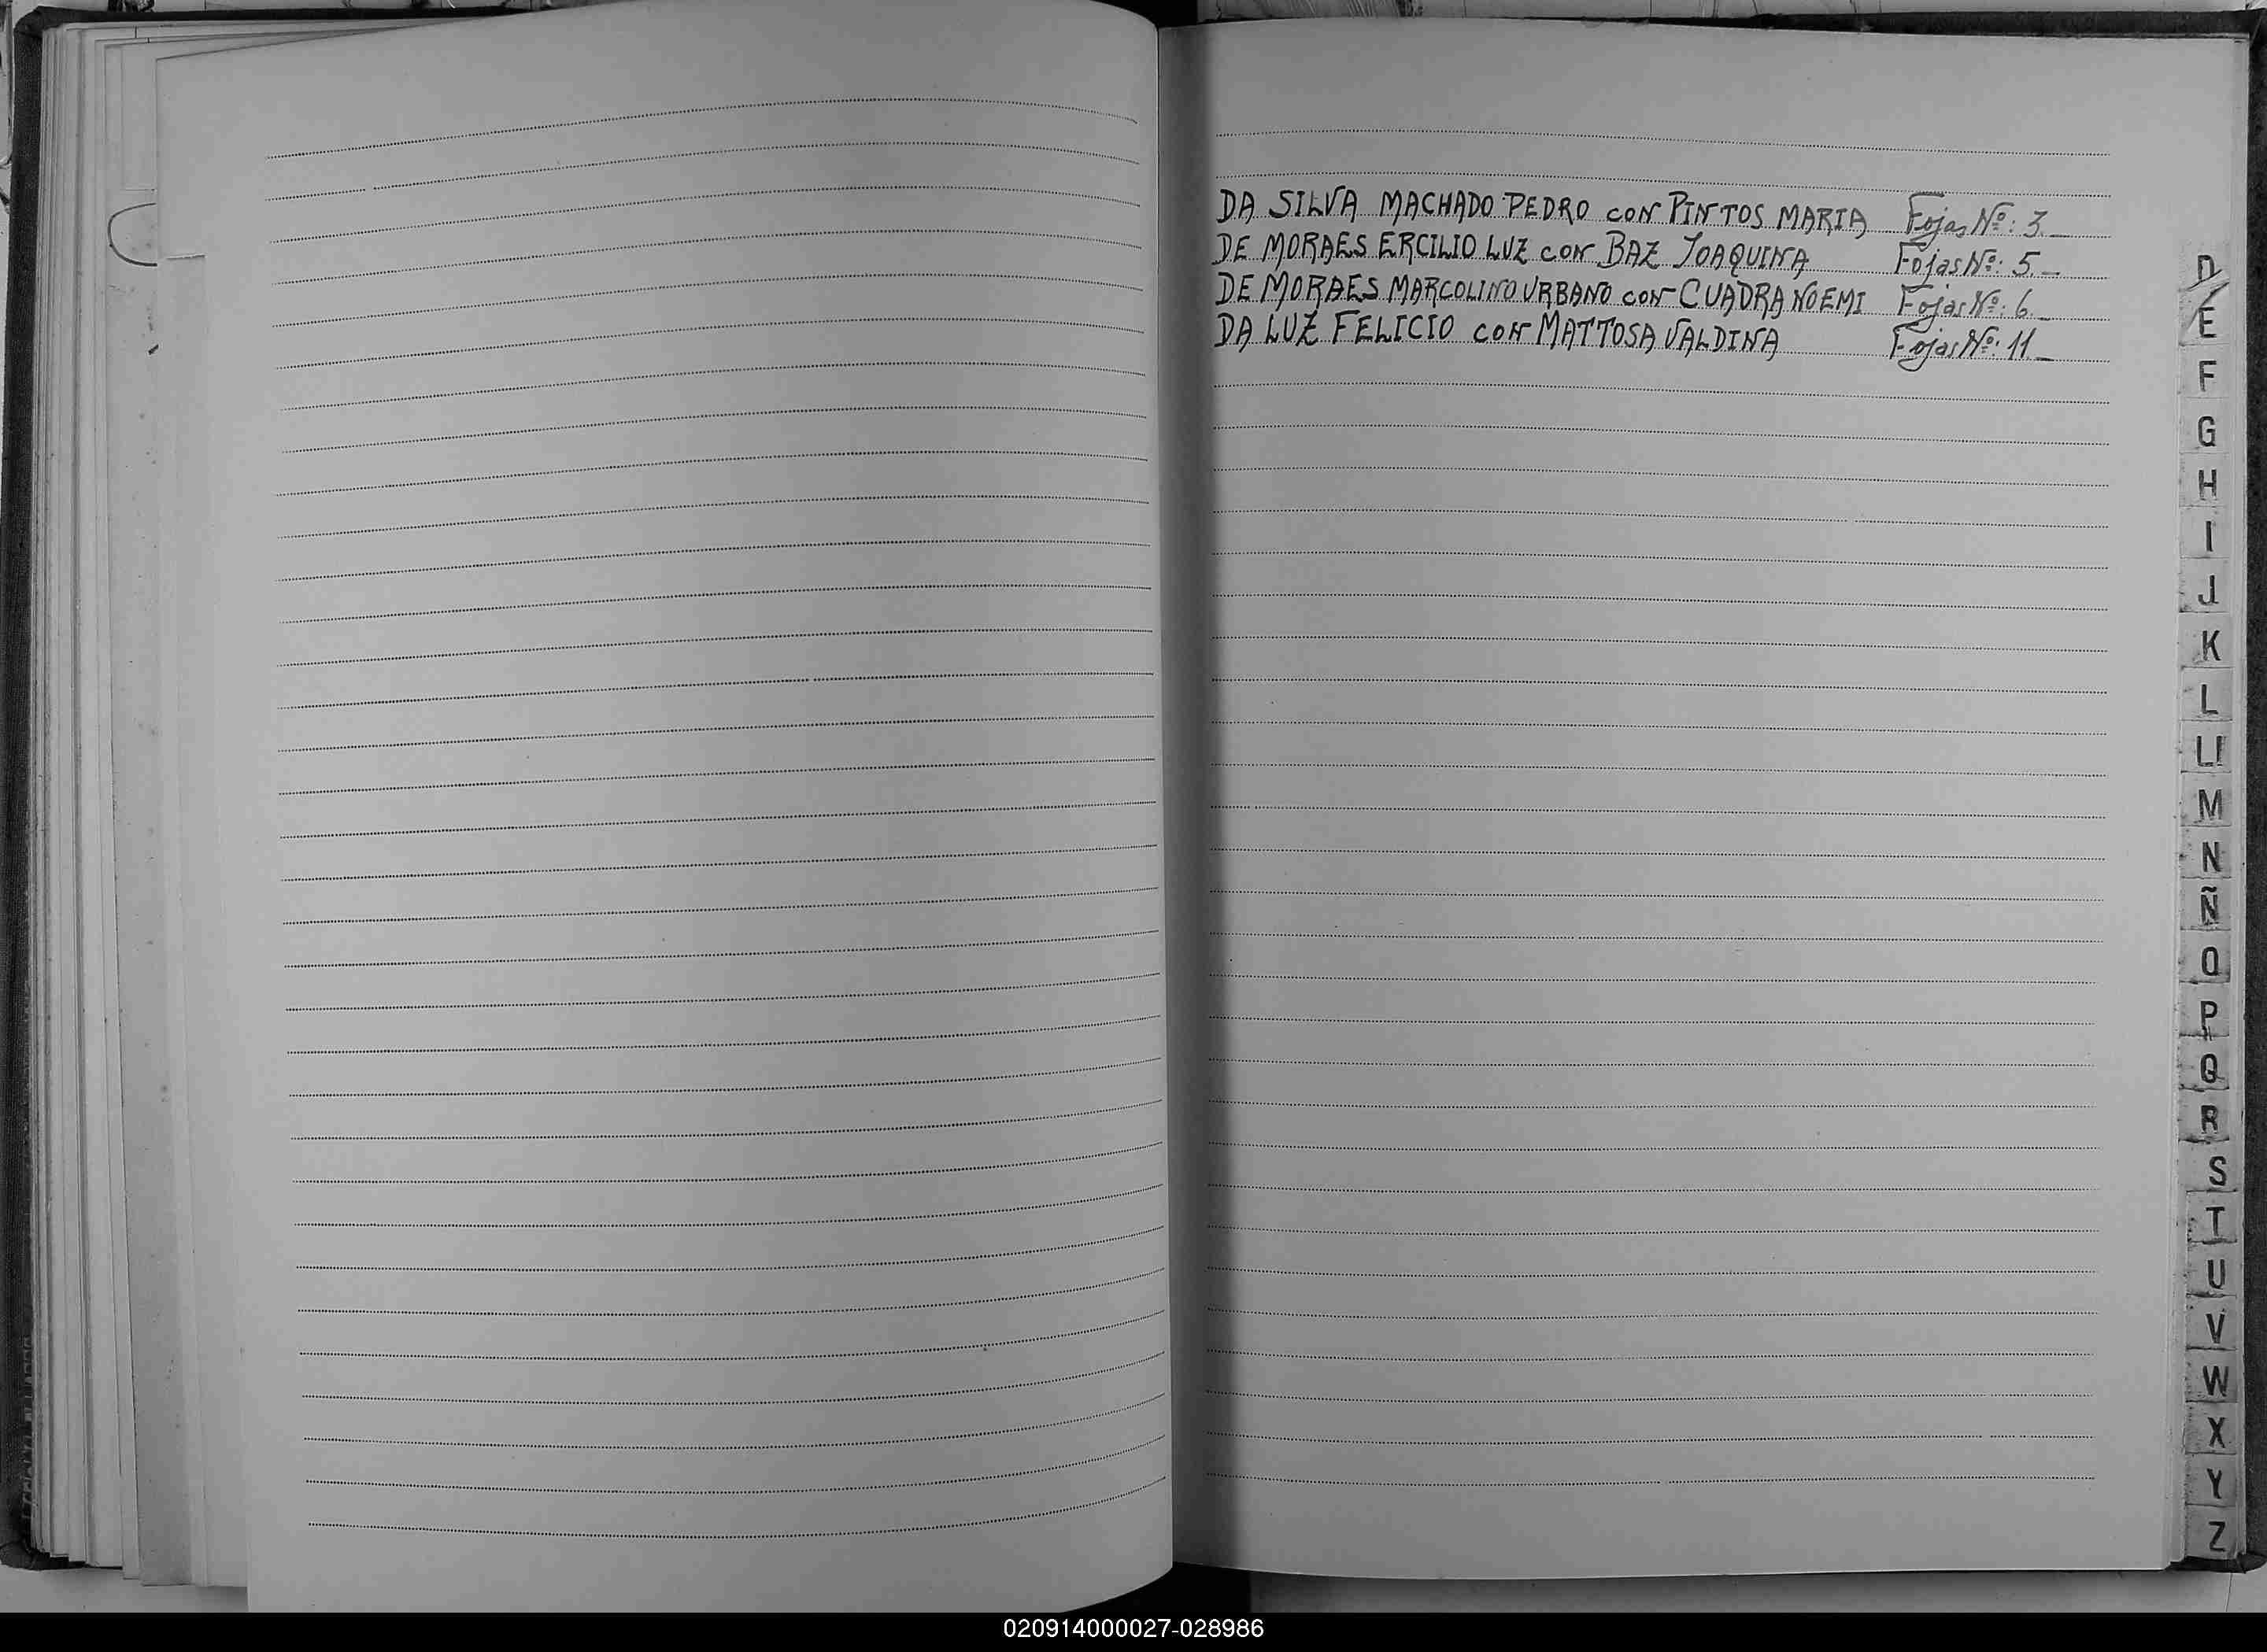 DA SILVA MACHADO PEDRO CON PINTOS MARIA Fojas Nº: 3._
DE MORAES ERCILIO LUZ CON BAZ JOAQUINA Fojas Nº: 5._
DE MORAES MARCOLINO URBANO CON CUADRA NOEMI Fojas Nº: 6._
DA LUZ FELICIO CON MATTOSA VALDINA Fojas Nº: 11_
D
E
F
G
H
I
J
K
L
LL
M
N
Ñ
O
P
Q
R
S
T
U
V
W
X
Y
Z
020914000027-028986